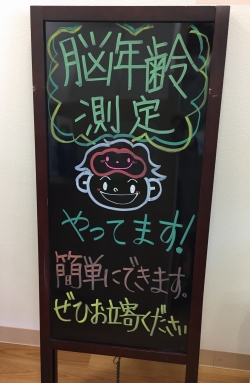 脳年齢
測定
やってます!
簡単にできます。
ぜひお立寄ください